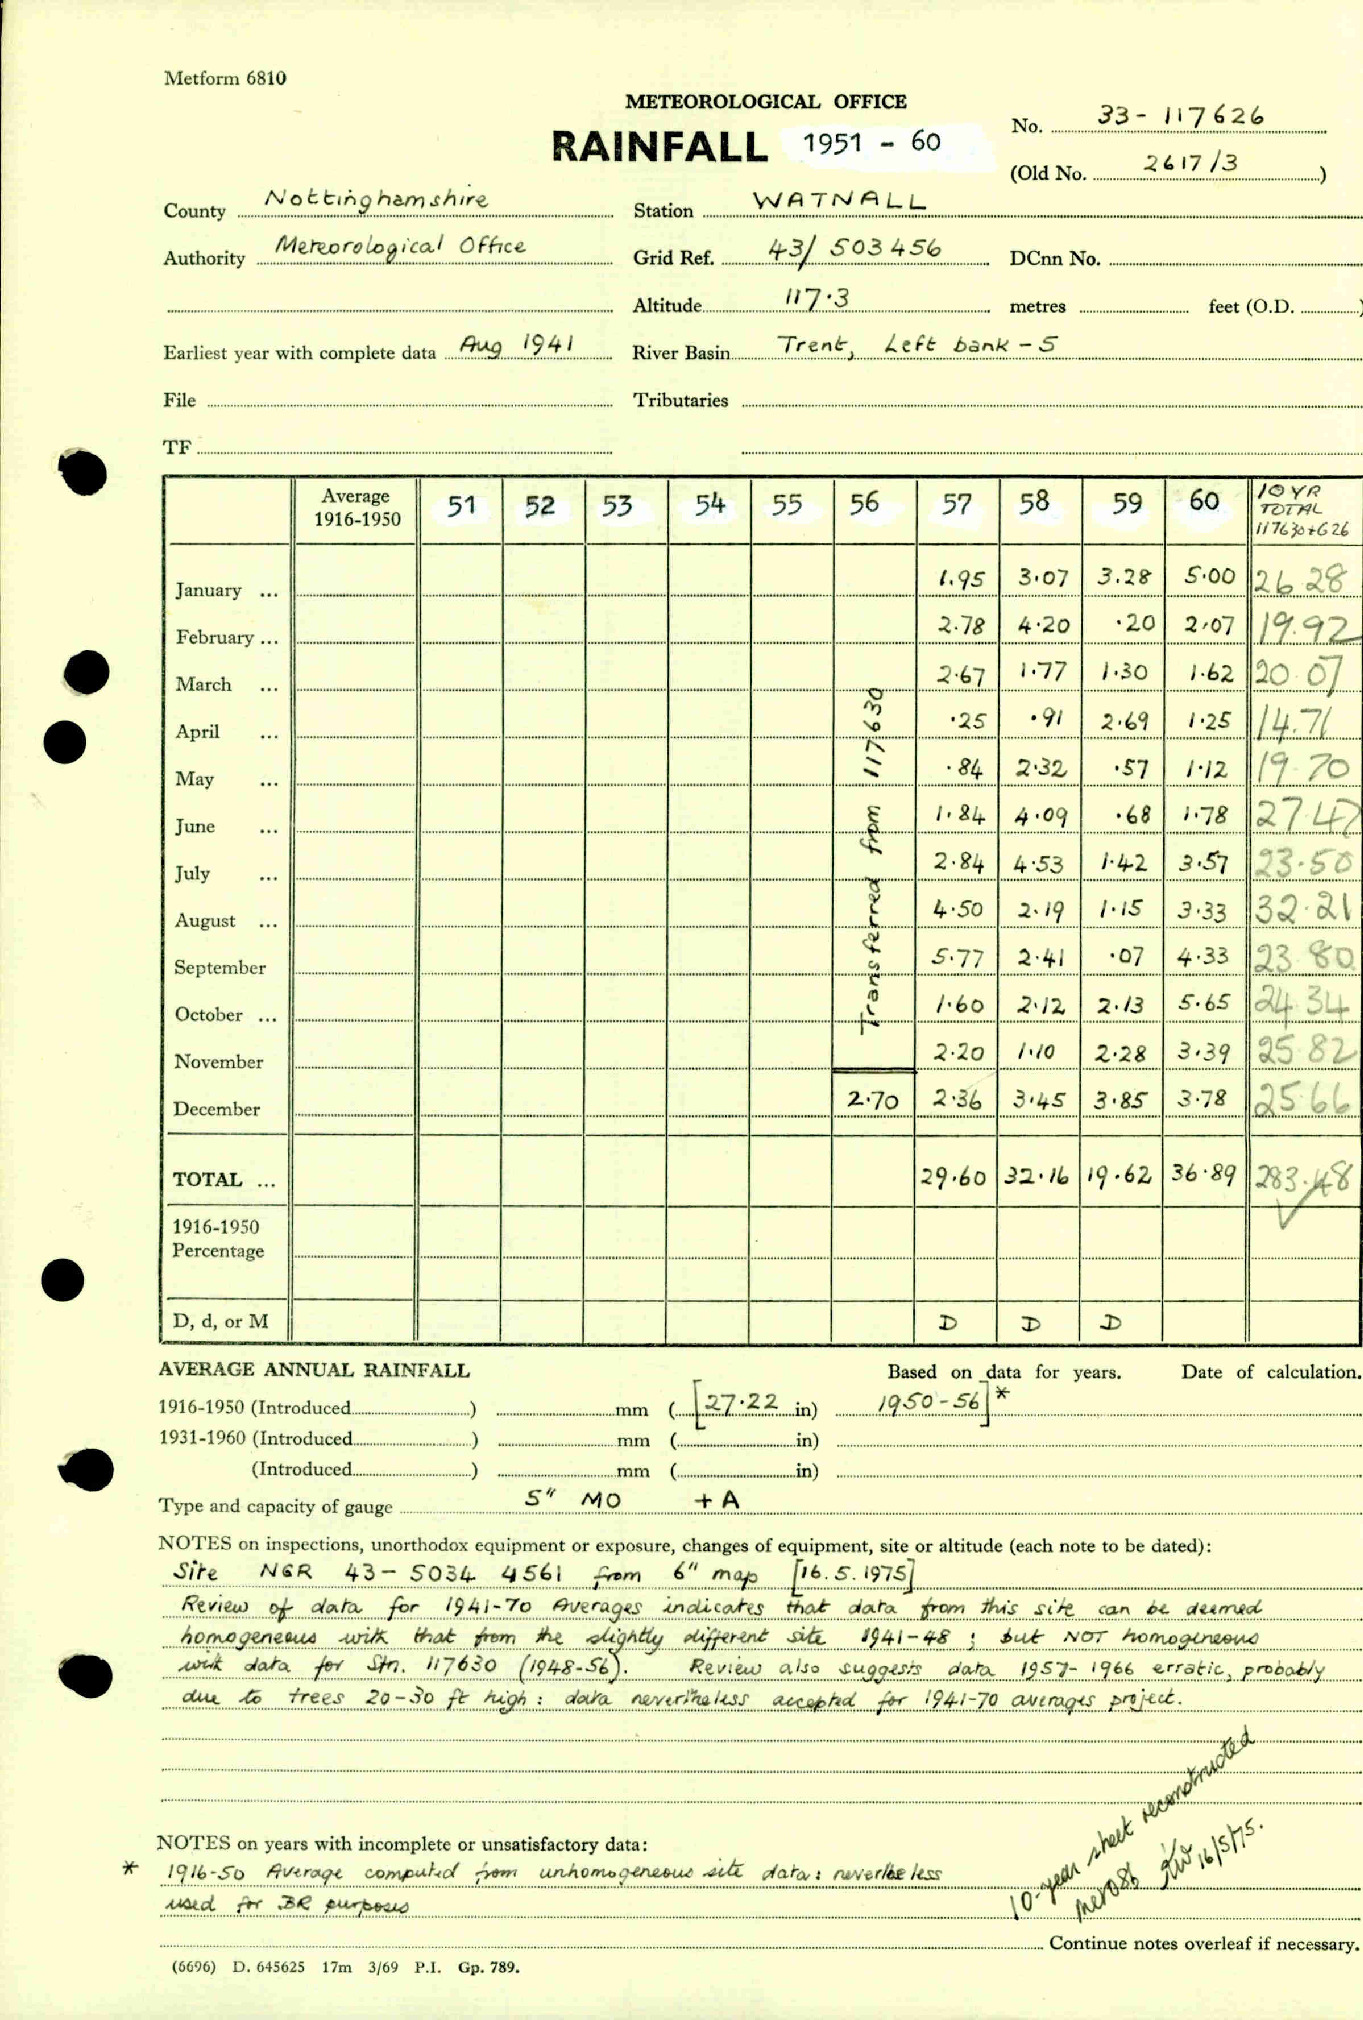 Metform 6810
METEOROLOGICAL OFFICE
RAINFALL 1951 - 60
No. 33- 117626
(Old No. 2617/3)
County Nottinghamshire
Station WATNALL
Authority Meteorological Office
Grid Ref. 43/ 503456 DCnn No.
Altitude 117.3 metres feet (O.D. )
Earliest year with complete data Aug 1941
River Basin Trent, Left bank - 5
File
Tributaries
TF
Average 1916-1950 51 52 53 54 55 56 57 58 59 60 10 YR TOTAL 117630+626
January ... 1.95 3.07 3.28 5.00 26 28
February ... 2.78 4.20 .20 2.07 19.92
March ... 2.67 1.77 1.30 1.62 20 07
April ... .25 .91 2.69 1.25 14.71
May ... .84 2.32 .57 1.12 19 70
June ... 1.84 4.09 .68 1.78 27.47
July ... 2.84 4.53 1.42 3.57 23.50
August ... 4.50 2.19 1.15 3.33 32.21
September 5.77 2.41 .07 4.33 23 80
October ... 1.60 2.12 2.13 5.65 24.34
November 2.20 1.10 2.28 3.39 25.82
December 2.70 2.36 3.45 3.85 3.78 25.66
Transferred from 117630
TOTAL ... 29.60 32.16 19.62 36.89 283.48
1916-1950
Percentage
D, d, or M D D D
AVERAGE ANNUAL RAINFALL Based on data for years. Date of calculation.
1916-1950 (Introduced ) mm ( [27.22 in) 1950-56]*
1931-1960 (Introduced ) mm ( in)
(Introduced ) mm ( in)
Type and capacity of gauge 5" MO + A
NOTES on inspections, unorthodox equipment or exposure, changes of equipment, site or altitude (each note to be dated):
Site NGR 43- 5034 4561 from 6" map [16.5.1975]
Review of data for 1941-70 Averages indicates that data from this site can be deemed
homogeneous with that from the slightly different site 1941-48 ; but NOT homogineous
with data for Stn. 117630 (1948-56). Review also suggests data 1957-1966 erratic, probably
due to trees 20-30 ft high : data nevertheless accepted for 1941-70 averages project.
10-year sheet reconstructed
16/5/75.
NOTES on years with incomplete or unsatisfactory data:
* 1916-50 Average computed from unhomogeneous site data: nevertheless
used for BR purposes
Continue notes overleaf if necessary.
(6696) D. 645625 17m 3/69 P.I. Gp. 789.